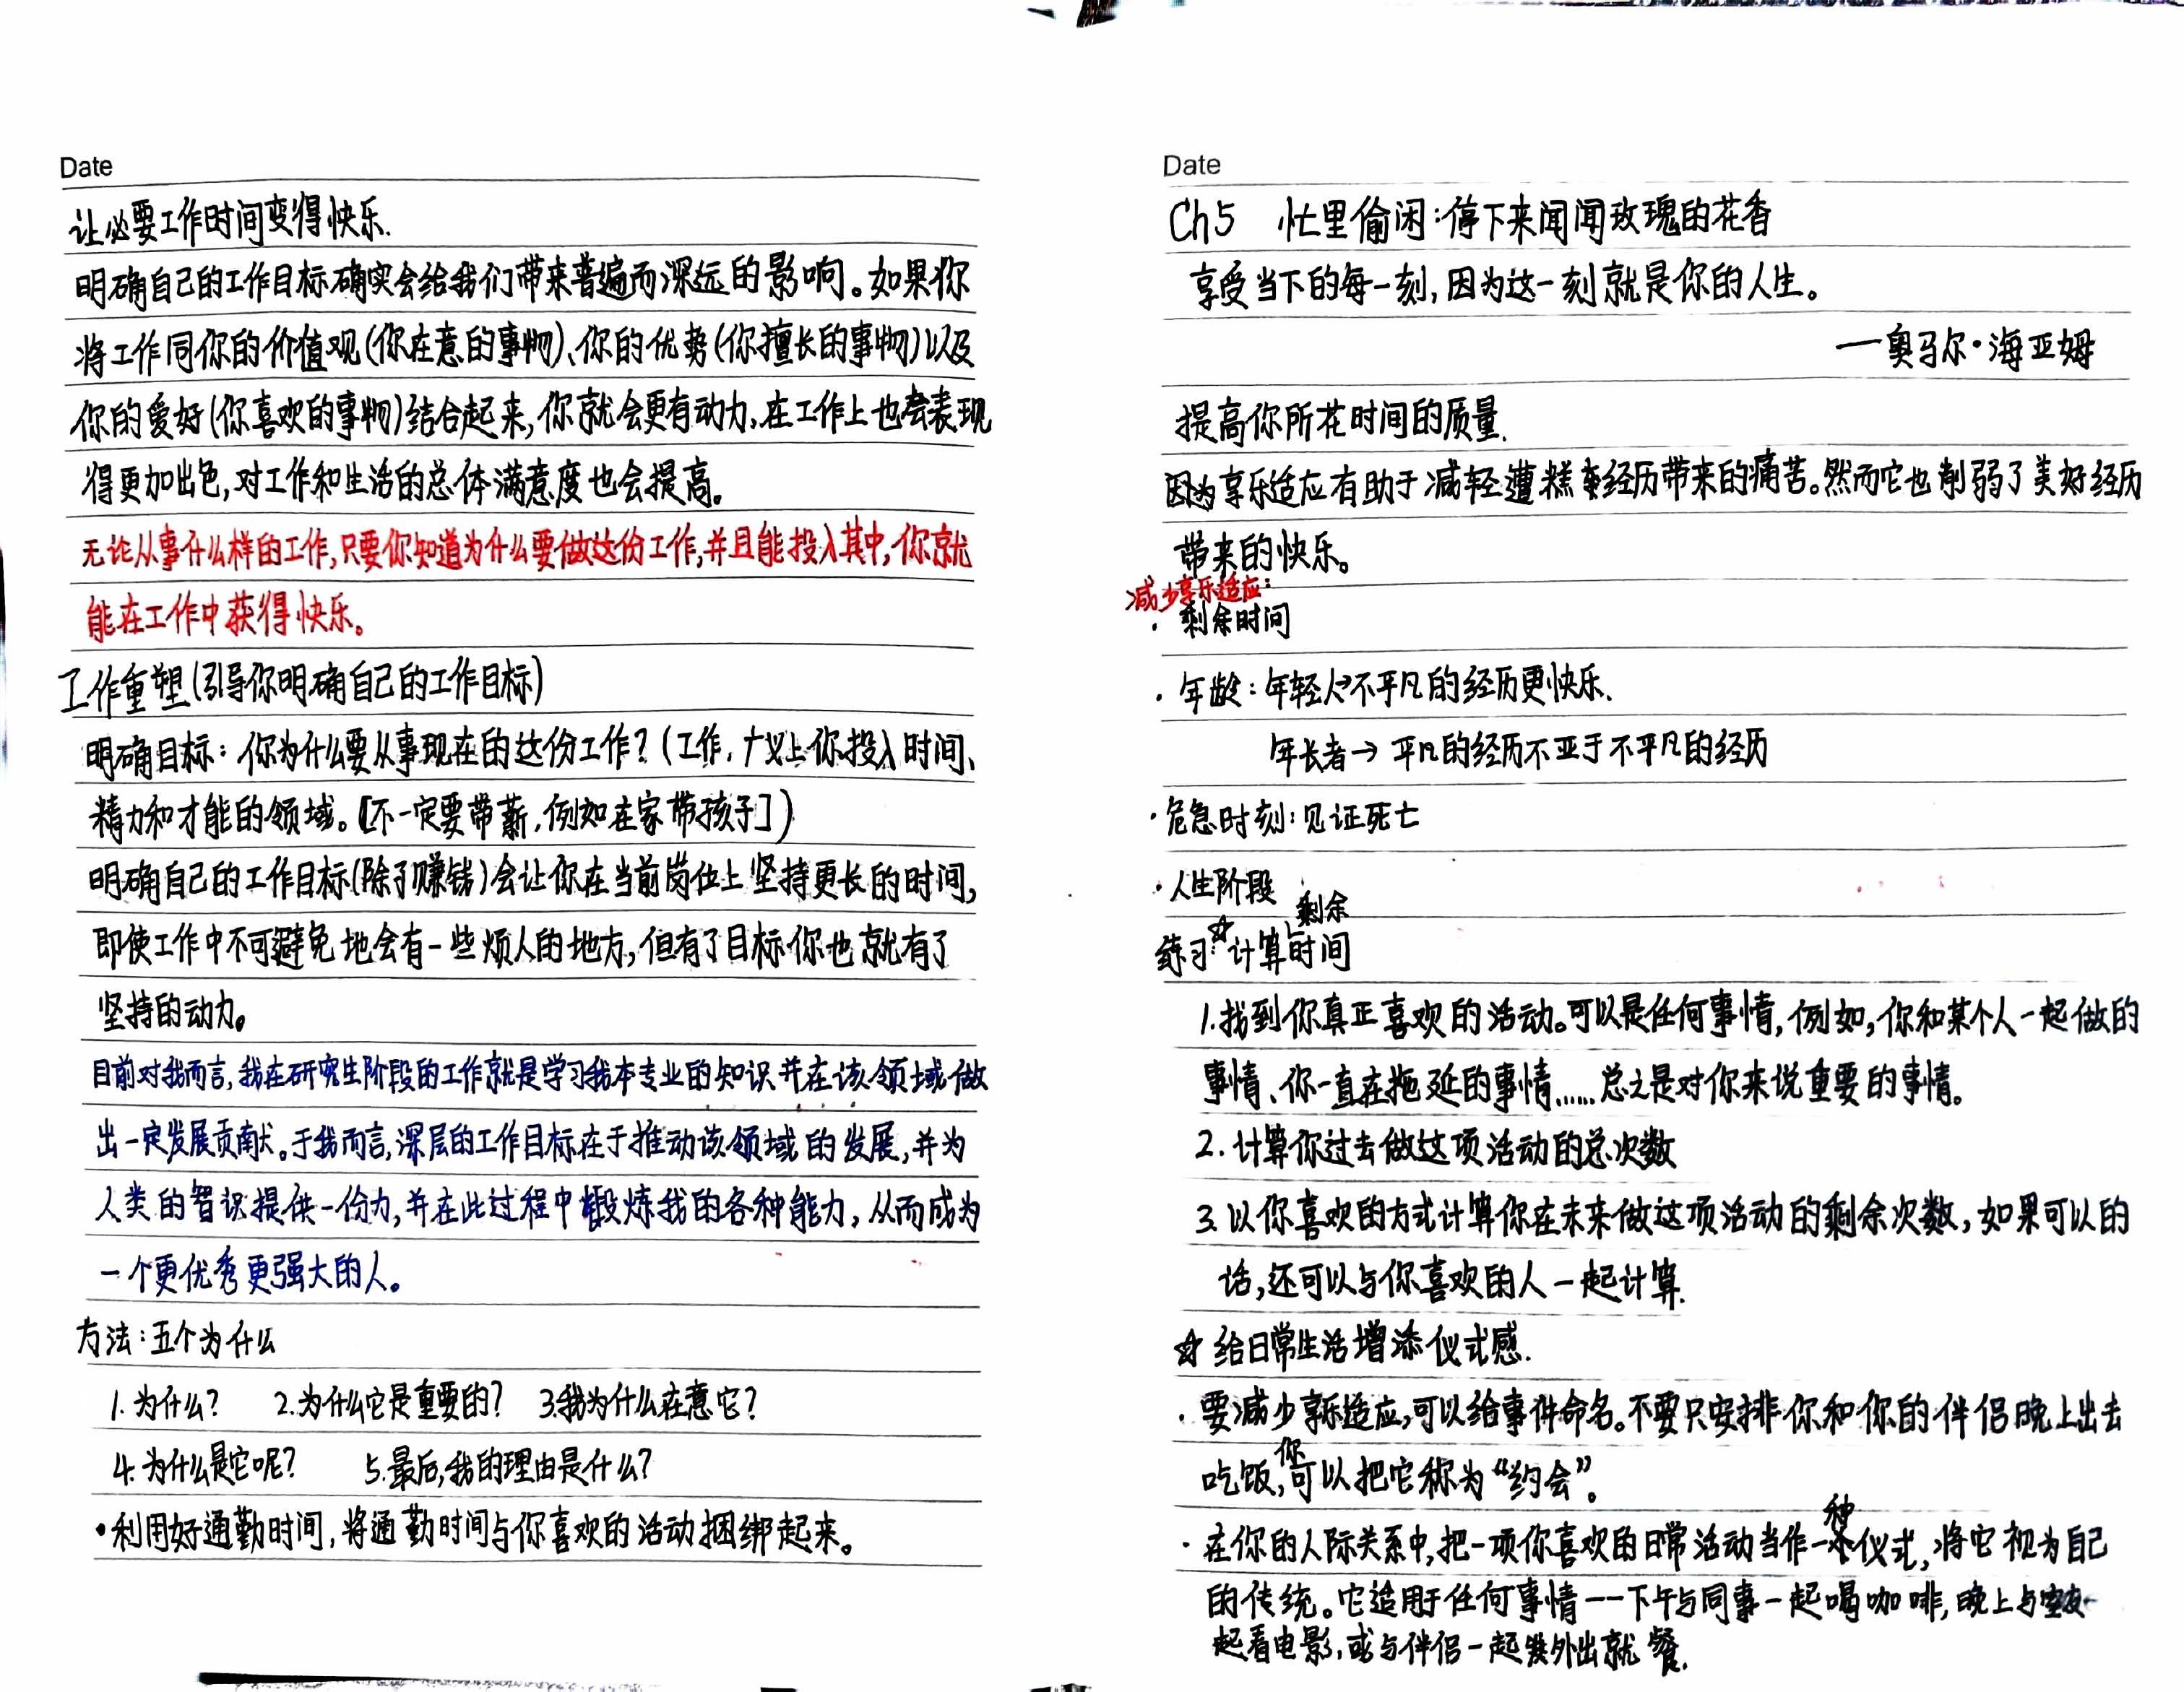 Date
让必要工作时间变得快乐.
明确自己的工作目标确实会给我们带来普遍而深远的影响。如果你
将工作同你的价值观(你在意的事物)、你的优势(你擅长的事物)以及
你的爱好(你喜欢的事物)结合起来,你就会更有动力,在工作上也会表现
得更加出色,对工作和生活的总体满意度也会提高。
无论从事什么样的工作,只要你知道为什么要做这份工作,并且能投入其中,你就
能在工作中获得快乐。
工作重塑(引导你明确自己的工作目标)
明确目标:你为什么要从事现在的这份工作?(工作,广义上你投入时间、
精力和才能的领域。[不一定要带薪,例如在家带孩子])
明确自己的工作目标(除了赚钱)会让你在当前岗位上坚持更长的时间,
即使工作中不可避免地会有一些烦人的地方,但有了目标你也就有了
坚持的动力。
目前对我而言,我在研究生阶段的工作就是学习我本专业的知识并在该领域做
出一定发展贡献。于我而言,深层的工作目标在于推动该领域的发展,并为
人类的智识提供一份力,并在此过程中锻炼我的各种能力,从而成为
一个更优秀更强大的人。
方法:五个为什么
1.为什么? 2.为什么它是重要的? 3.我为什么在意它?
4.为什么是它呢? 5.最后,我的理由是什么?
•利用好通勤时间,将通勤时间与你喜欢的活动捆绑起来。
Date
Ch5 忙里偷闲:停下来闻闻玫瑰的花香
享受当下的每一刻,因为这一刻就是你的人生。
——奥马尔·海亚姆
提高你所花时间的质量.
因为享乐适应有助于减轻遭糕经历带来的痛苦。然而它也削弱了美好经历
带来的快乐。
减少享乐适应:
·剩余时间
·年龄:年轻人→不平凡的经历更快乐.
年长者→平凡的经历不亚于不平凡的经历
·危急时刻:见证死亡
·人生阶段
练习:☆计算剩余时间
1.找到你真正喜欢的活动。可以是任何事情,例如,你和某个人一起做的
事情、你一直在拖延的事情……总之是对你来说重要的事情。
2.计算你过去做这项活动的总次数
3.以你喜欢的方式计算你在未来做这项活动的剩余次数,如果可以的
话,还可以与你喜欢的人一起计算.
☆给日常生活增添仪式感.
·要减少享乐适应,可以给事件命名。不要只安排你和你的伴侣晚上出去
吃饭,你可以把它称为“约会”。
·在你的人际关系中,把一项你喜欢的日常活动当作一种仪式,将它视为自己
的传统。它适用于任何事情——下午与同事一起喝咖啡,晚上与室友一
起看电影,或与伴侣一起外出就餐.